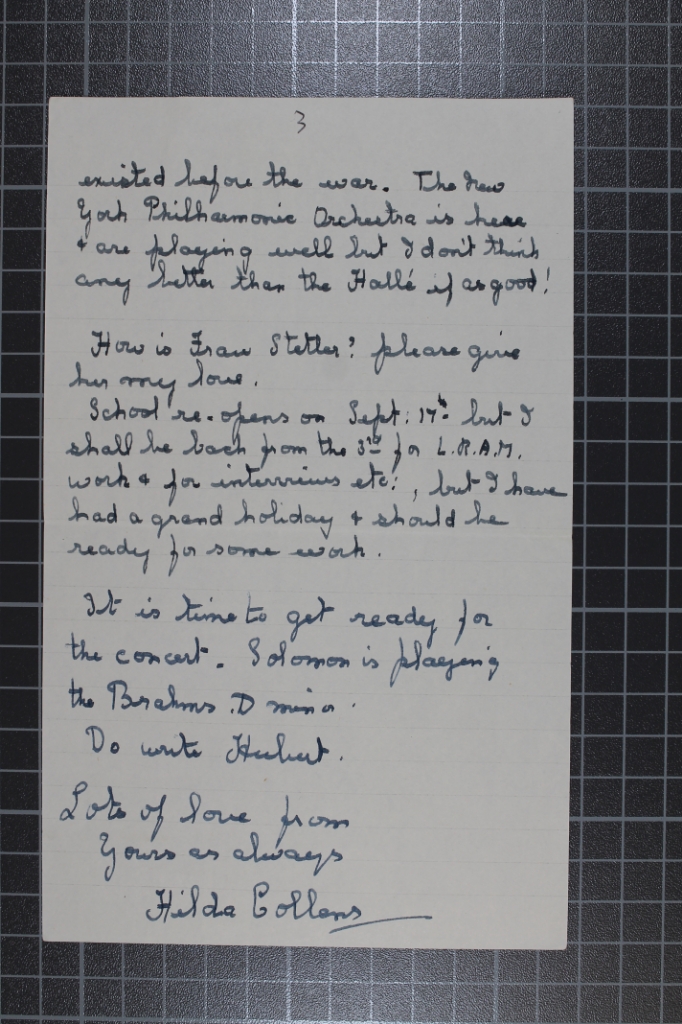 3
existed before the war. The New
York Philharmonic Orchestra is here
& are playing well but I don't think
any better than the Hallé if as good!
How is Frau Stetler? please give
her my love.
School re-opens on Sept: 17th but I
shall be back from the 3rd for L.R.A.M.
work & for interviews etc:, but I have
had a grand holiday & should be
ready for some work.
It is time to get ready for
the concert. Solomon is playing
the Brahms D minor.
Do write Hubert.
Lots of love from
Yours as always
Hilda Collens